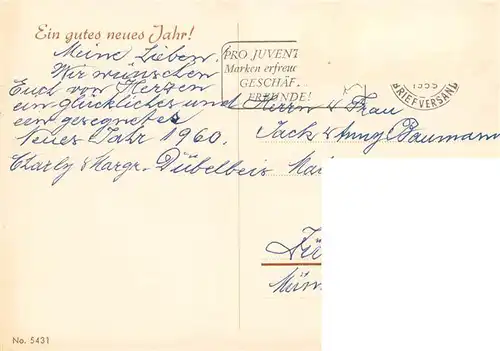 Ein gutes neues Jahr!
Meine Lieben,
Wir wünschen
Euch von Herzen
ein glückliches und
ein gesegnetes
Neues Jahr 1960.
Charly & Margr. Dübelbeis
PRO JUVENT
Marken erfreuc
GESCHÄF
FREUNDE!
BRIEFVERSAND
Herrn & Frau
Jack & Anny Baumann
No. 5431